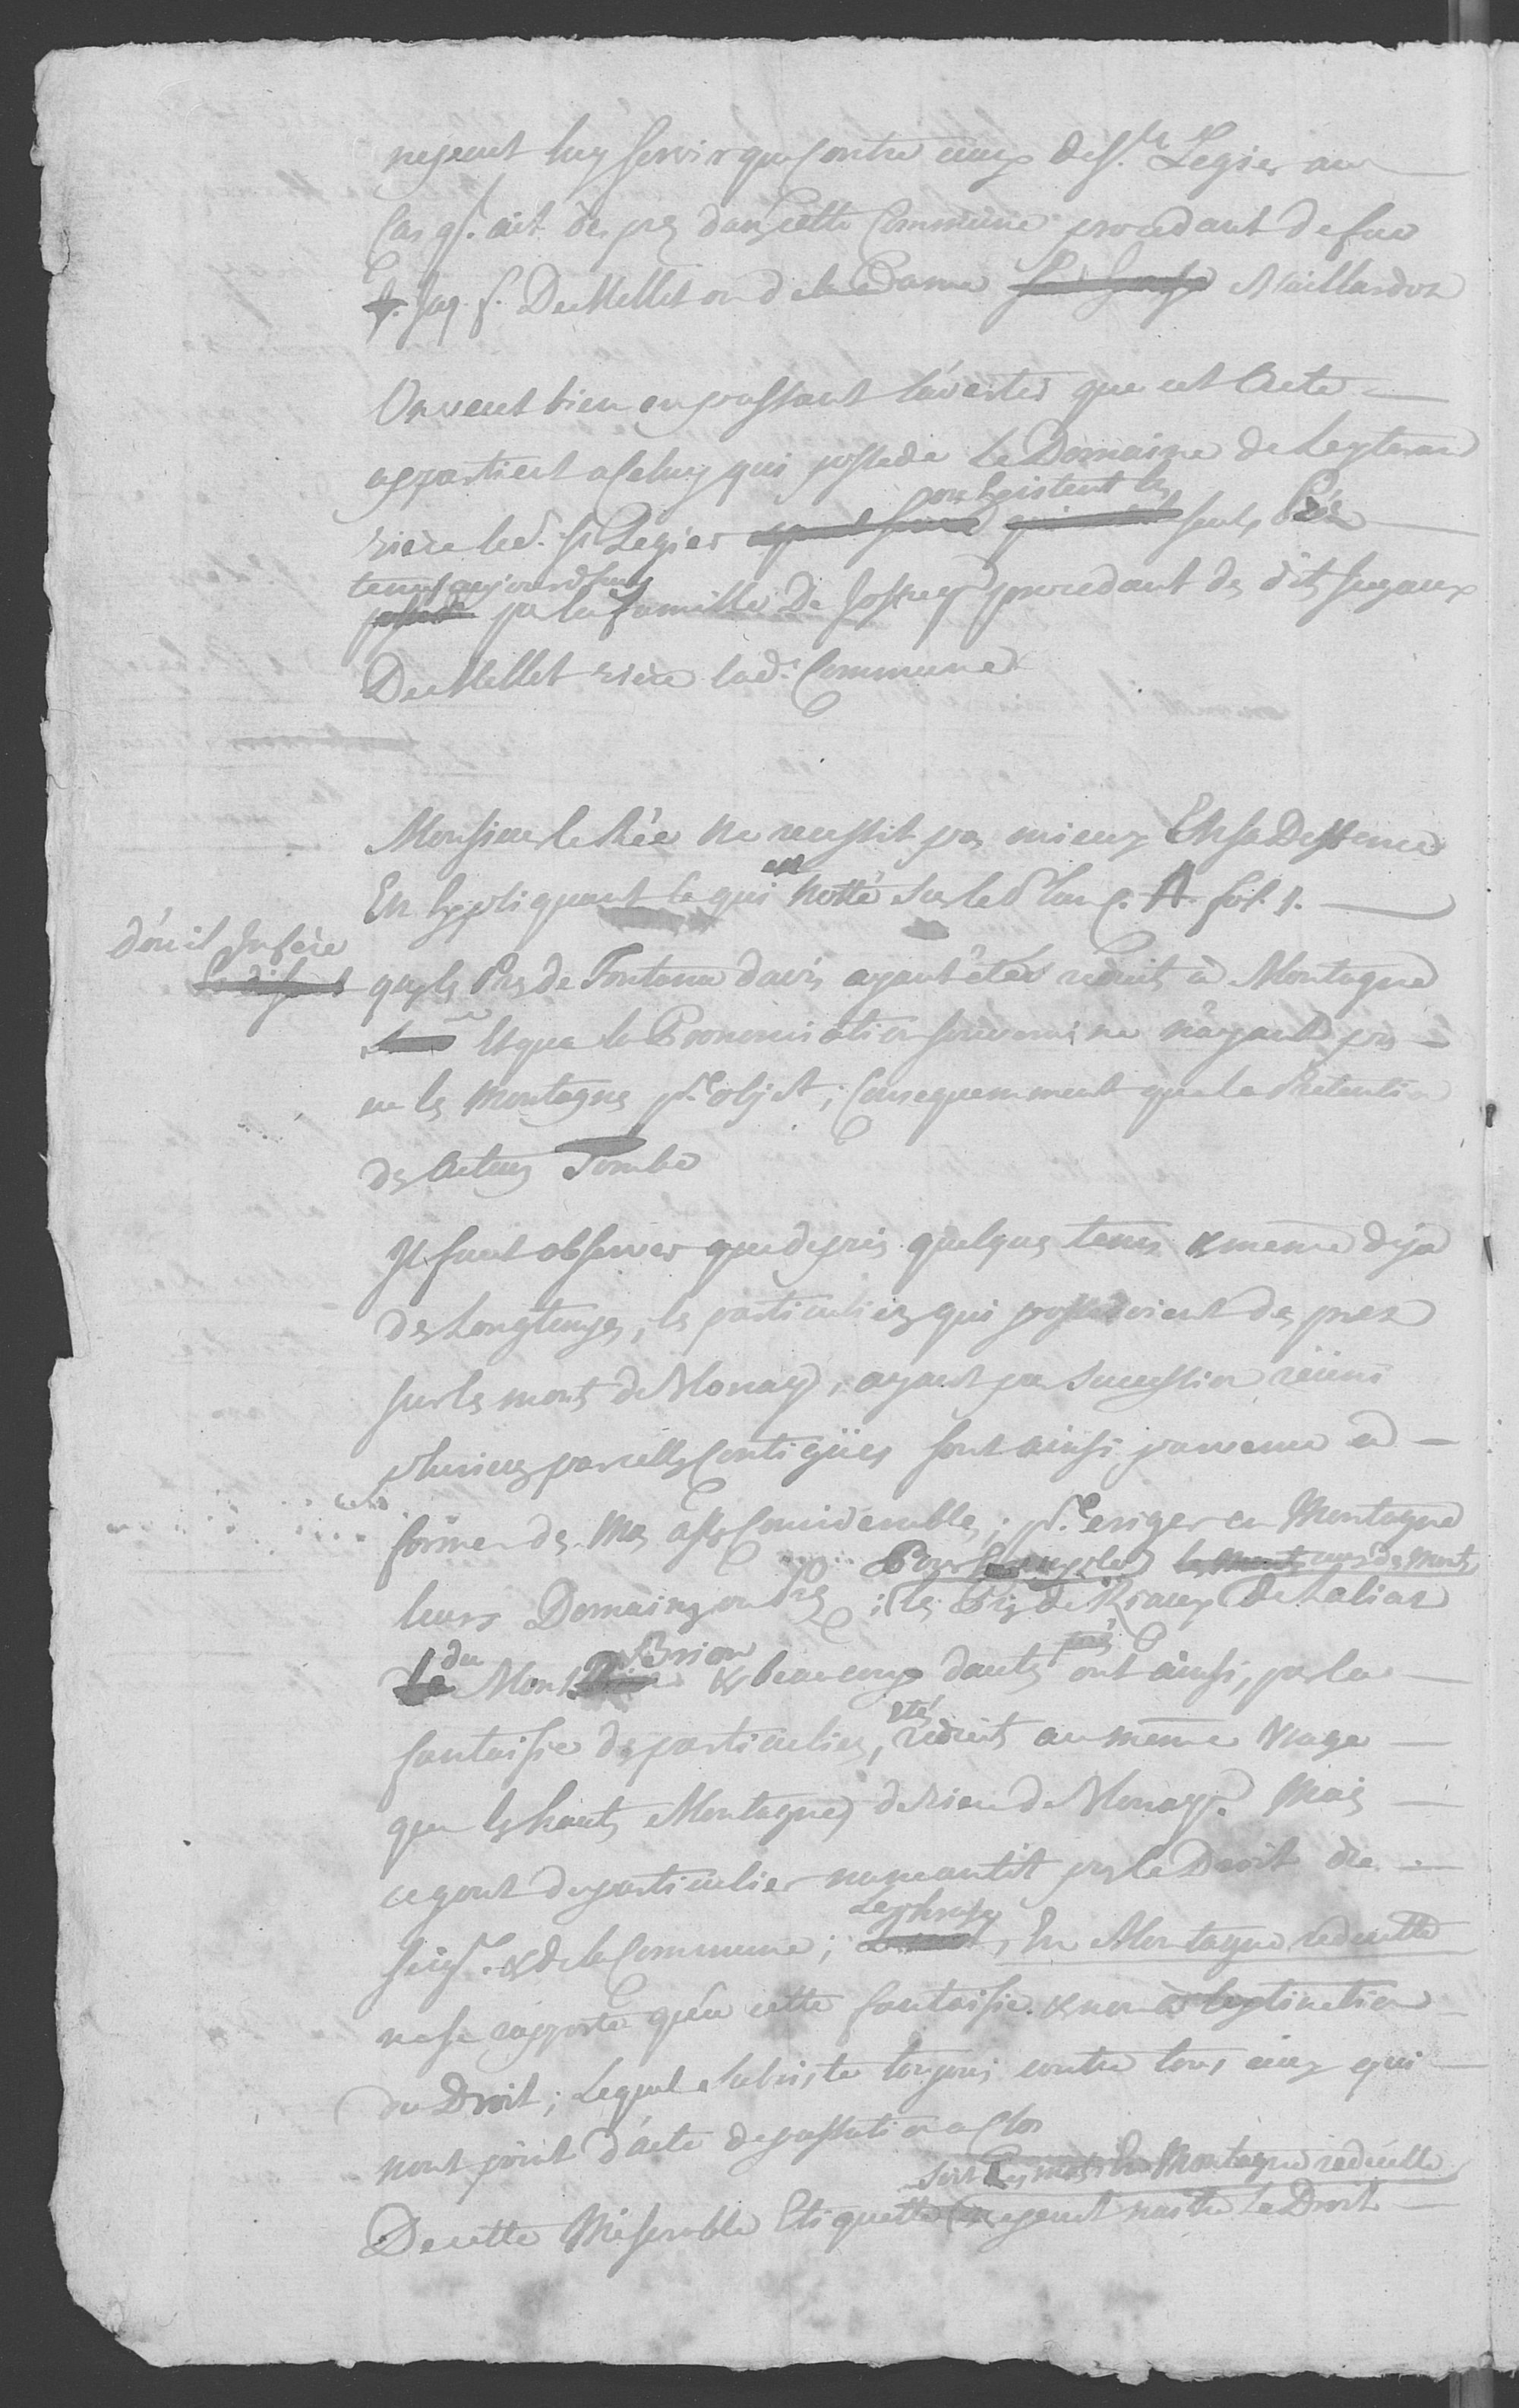 ne peut luy servir que contre ceux de St. Legier au
Cas qu'il ait des prez dans cette Commune procedant de feu
Jaq. f. DeMellet ou de la Dame Maillardoz
On veut bien en passant l'avertir que cet Acte
appartient a Celuy qui possede Le Domaine de Leyteran
riere led. St Legier ou Existent les seuls Prés
tenus aujourdhuy par la famille De Joffrey procedant des dits Seigneurs
DeMellet riere lad.e Commune
Monsieur le Rée ne reussit pas mieux En sa Deffence
En Expliquant Ce qui est notté sur led. Plan C. A fol. 1.
d'où il Infere
que les Prés de Fontana davis ayant étés reduit à Montagne
Et que la Prononciation souveraine n'ayant pas
eu les Montagnes pr. objet; Consequemment que la Pretention
des Acteurs Tombe
Il faut observer que depuis quelques tems & meme deja
des Longtemps, les particuliers qui possedoient des prez
sur les monts de Blonay, ayant par succession réüni
plusieurs parcelles Contigües sont ainsi parvenu a
former des Mas assés Considerables, pr. eriger en Montagne
Pour Exemple
leurs Domaines ou Prés; les Prés de Praux De Laliaz
du Mont Brion & beaucoup dautres prés ont ainsi, par la
fantaisie des particuliers, été reduits au même Usage
que les hautes Montagnes de riere de Blonay. Mais
ce gout de particulier naneantit pas le Droit du
Seigr. & de la Commune; Le phrase, En Montagne reduitte
ne se rapporte qu'a cette fantaisie & non a lextinction
du Droit; Lequel subsiste toujours contre tous ceux qui
nont point d'acte de passation a Clos
sur Ces mots En Montagne reduitte
De cette Miserable Etiquette ne peut naitre Le Droit